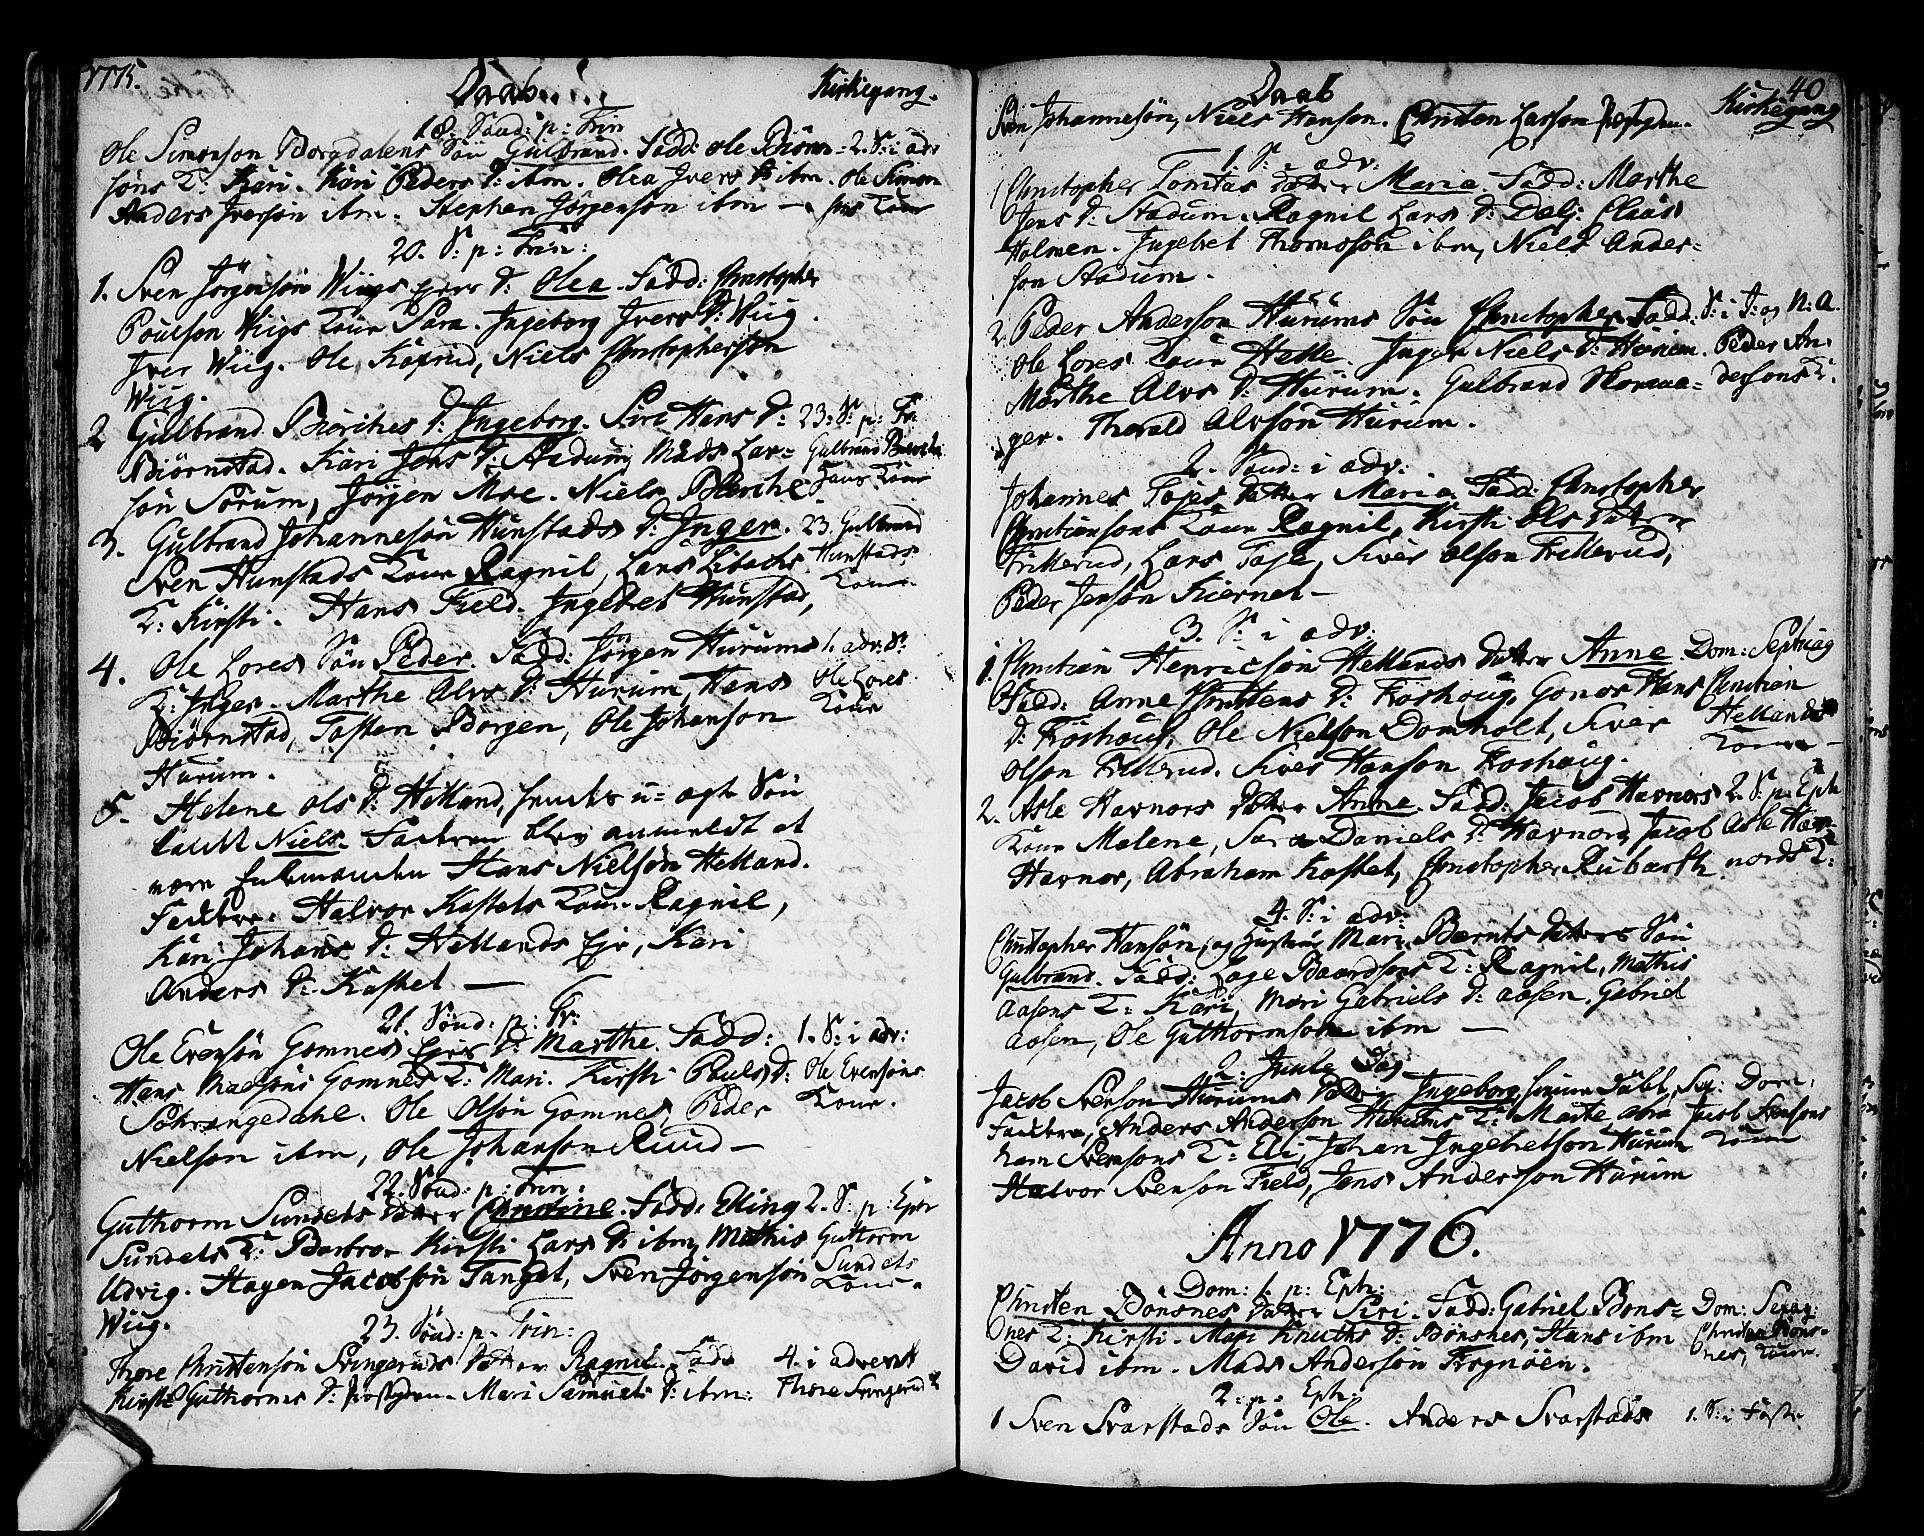 1775.
Daab
Kirkegang.
18. Sönd: p: Trin
Ole Simonson Borgdalens Sön Gulbrand. Fadd: Ole Biörn=
söns K: Kari. Kari Peders D: ibm. Olea Ivers D: ibm.
Anders Iverson ibm. Stephen Jörgenson ibm —
2. S: i adv
Ole Simon
söns Kone
20. S: p: Trin:
1. Sven Jörgensön Wiigs D: Olea. Fadd: Christopher
Poulson Wiigs Kone Sara. Ingeborg Ivers D: Wiig.
Iver Wiig. Ole Kofrud, Niels Christopherson
Wiig.
2 Gulbrand Börches D: Ingeborg. Siri Hans D:
Biörnstad. Kari Jens D: Stadum, Mads Lar=
sön Sörum, Jörgen Moe. Niels Bersche
23: S: p: Tr.
Gulbrand
Kone
3. Gulbrand Johannesön Hunstads D: Inger.
Sven Hunstads Kone Ragnil, Lars Libachs
K: Kirsti. Hans Field. Ingebet Hunstad,
23. Gulbrand
Hunstads
Kone
4. Ole Lores Sön Peder. Fadd: Jörgen Hurums
K: Inger. Marthe Alvs D: Hurum, Hans
Biörnstad, Tosten Borgen, Ole Johanson
Hurum.
1. adv: S:
Ole Lores
Kone
5. Helene Ols D: Helland, u= ægte Sön
kaldt Niels. Faderen blev anmeldt at
være Hans Nielsön Helland.
Faddere: Halvor Kastets Kone Ragnil,
Kari Johans D: Hellands Eje, Kari
Anders D: Kastet —
21. Sönd: p: Tr:
Ole Evensön Gomnes Ejes D: Marthe. Fadd:
Hans Madsöns Gomnes K: Mari. Kirsti Pouls D:
Sohrangedahl. Ole Olsön Gomnes, Peder
Nielson ibm, Ole Johanson Ruud —
1. S: i adv:
Ole Evensöns
Kone.
22. Sönd: p: Trin:
Guthorm Sundets Datter Christine. Fadd: Elling
Sundets K: Barbro. Kirsti Lars D: ibm, Mathis
Udvig. Hagen Jacobsön Tanget, Sven Jörgensön
Wiig.
2. S: p: Eph
Guttorm
Sundets
Kone
23. Sönd: p: Trin:
Thore Christensön Svingeruds Datter Ragnil. Fadd
Kirsti Guthorms D: Mari Samuels D: ibm:
4. i advent
Thore Svingerud K
40
Daab
Kirkegang
Sven Johannesön, Niels Hanson. Christen Larson
1. S: i adv:
1 Christopher Tomtas Datter Maria. Fadd: Marthe
Jens D: Stadum. Ragnil Lars D: Dælj. Claas
Holmen. Ingebret Thomosson ibm, Niels Ander=
son Stadum.
2. Peder Anderson Hurums Sön Christopher. Fadd:
Ole Lores Kone Helle. Inger Niels D: Hurum.
Marthe Alvs D: Hurum. Gulbrand Norma=
ger. Thorald Alvson Hurum.
S: i J: og N: A.
Peder An=
dersons K:
2. Sönd: i adv:
Johannes Fojes Datter Maria. Fadd: Christopher
Christiansons Kone Ragnil, Kirsti Ols Datter
Frillerud, Lars Foje, Siver Olson Frillerud,
Peder Jenson Kiernet —
3. S: i adv:
1. Christian Henricsön Hellands Datter Anne.
Fadd: Anne Christens D: Froshoug, Gonor Hans
D: Froshoug, Ole Nielson Domholt, Siver
Olson Frillerud. Siver Hanson Froshoug.
Dom: Septuag
Christian
Hellands
Kone —
2. Asle Havnors Datter Anne. Fadd: Jacob Havnors
Kone Malene, Sara Daniels D: Havnord, Jacob
Havnor, Abraham Kastet, Christopher Rubarth
2. S: p: Eph
Asle Hav=
nords K:
4. S: i adv:
Christopher Hansön og Hustrue Mari Bernts Datters Sön
Gulbrand. Fadd: Lage Baardsens K: Ragnil, Mathis
Aasens K: Kari, Mari Gabriels D: Aasen, Gabriel
Aasen, Ole Guthormson ibm —
2. Juule Dag
Jacob Svenson Hurums Datter Ingeborg, hjemme Döbt,
Faddere, Anders Anderson Hurums K: Marte, Abra
ham Svensons K: Eli, Johan Ingebretson Hurum
Halvor Svenson Field, Jens Anderson Hurum
Dom:
Jacob Svensons
Kone
Anno 1776.
Dom: 1. p: Eph:
Christen Bönsnes Datter Siri. Fadd: Gabriel Bons=
nes K: Kirsti. Mari Knuths D: Bönsnes, Hans ibm
David ibm. Mads Andersön Frognöen.
Dom: Sexag:
Christen Bons=
nes, Kone.
2. p. Eph:
1 Sven Svarstads Sön Ole. Anders Svarstads
1. S: i Faste